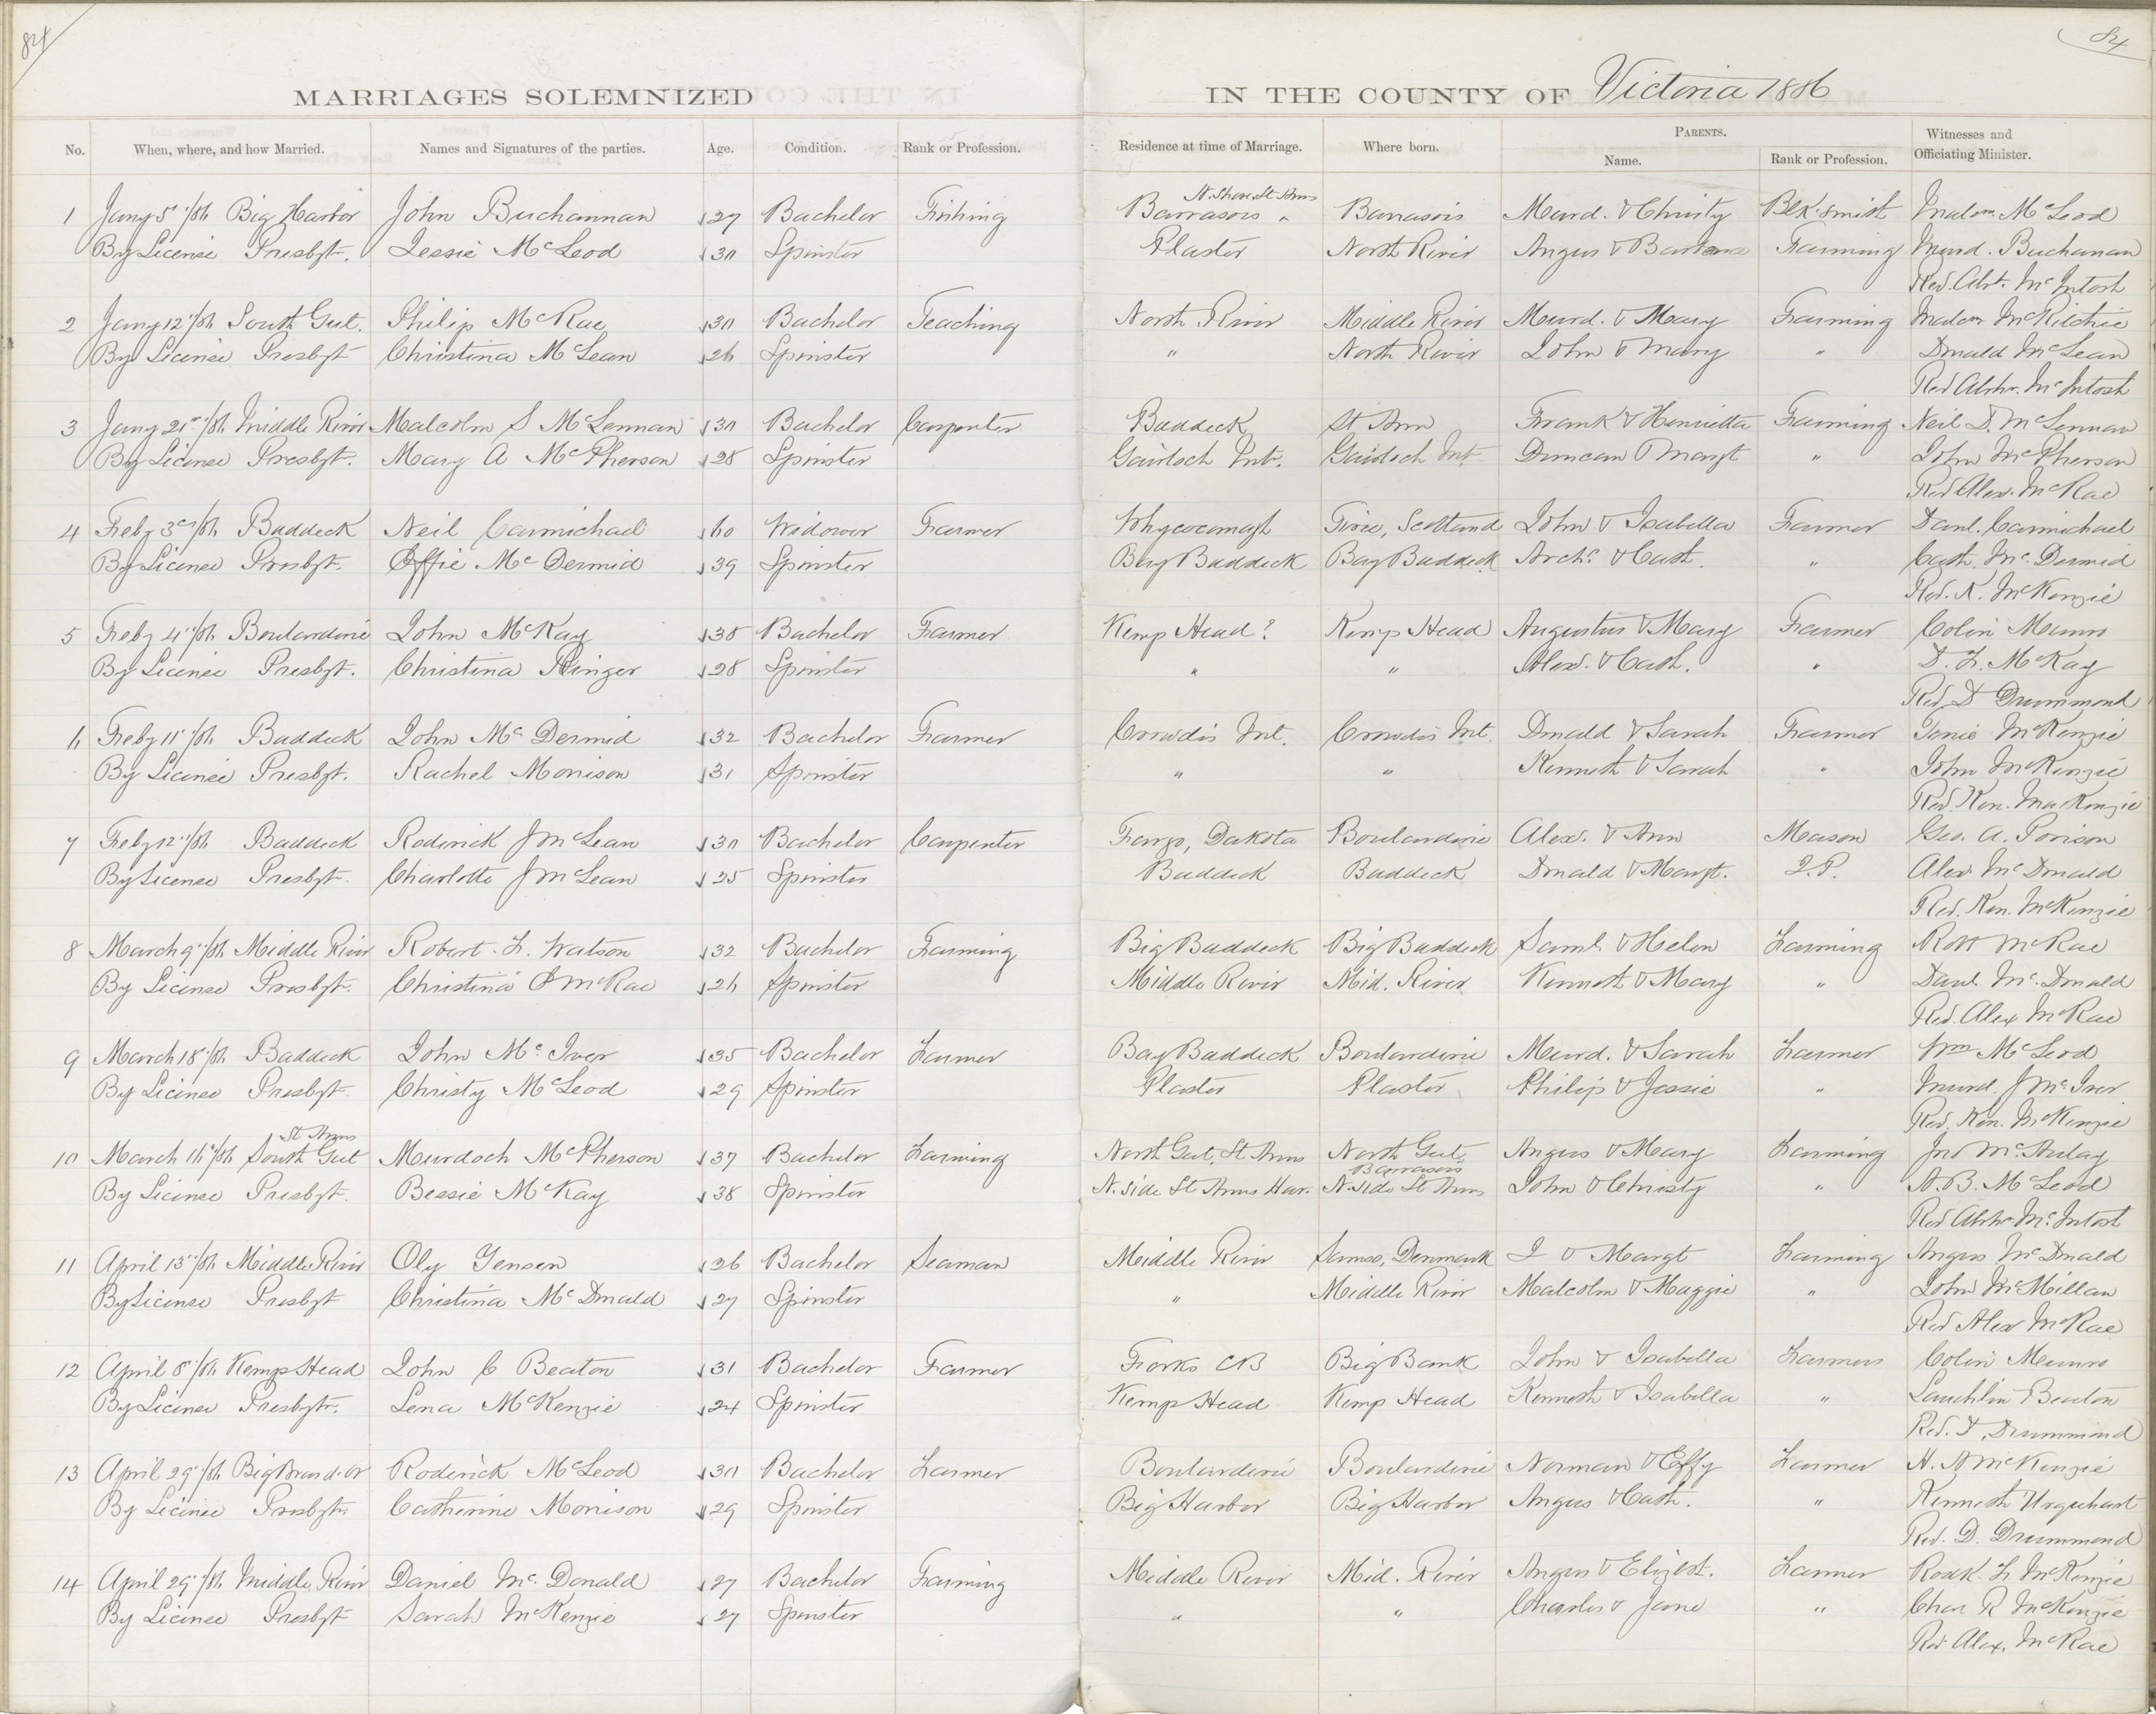 84
84
MARRIAGES SOLEMNIZED IN THE COUNTY OF Victoria 1886
No. When, where, and how Married. Names and Signatures of the parties. Age. Condition. Rank or Profession. Residence at time of Marriage. Where born. PARENTS. Name. Rank or Profession. Witnesses and Officiating Minister.
N. Shore St. Anns
1 Jany 5"/86 Big Harbor John Buchannan 27 Bachelor Fishing Barrasois Barrasois Murd. & Christy Blk. smith Malcm McLeod
By License Presbyt. Jessie McLeod 30 Spinster Plaster North River Angus & Barbara Farming Murd. Buchanan
Rev. Abr. McIntosh
2 Jany 12"/86 South Gut. Philip McRae 30 Bachelor Teaching North River Middle River Murd. & Mary Farming Malcm McRitchie
By License Presbyt Christina McLean 26 Spinster " North River John & Mary " Donald McLean
Rev Abrhm. McIntosh
3 Jany 21st/86 Middle River Malcolm S McLennan 30 Bachelor Carpenter Baddeck St Ann Frank & Henrietta Farming Neil D. McLennan
By License Presbyt. Mary A McPherson 28 Spinster Gairloch Mt. Gairloch Mt. Duncan & Margt " John McPherson
Rev Alex. McRae
4 Feby 3rd/86 Baddeck Neil Carmichael 60 Widower Farmer Whycocomagh Tiree, Scotland John & Isabella Farmer Danl. Carmichael
By License Presbyt. Effie McDermid 39 Spinster Bay Baddeck Bay Baddeck Archd. & Cath. " Cath. McDermid
Rev. K. McKenzie
5 Feby 4"/86 Boularderie John McKay 38 Bachelor Farmer Kemp Head? Kemp Head Augustus & Mary Farmer Colin Munro
By License Presbyt. Christina 28 Spinster " " Alex. & Cath. " D. F. McKay
Rev. D Drummond
6 Feby 11"/86 Baddeck John McDermid 32 Bachelor Farmer Crowdis Mt. Crowdis Mt. Donald & Sarah Farmer McKenzie
By License Presbyt. Rachel Morrison 31 Spinster " " Kenneth & Sarah " John McKenzie
Rev. Ken. MacKenzie
7 Feby 12"/86 Baddeck Roderick J McLean 30 Bachelor Carpenter Fargo, Dakota Boularderie Alex. & Ann Mason Geo. A.
By License Presbyt. Charlotte J McLean 25 Spinster Baddeck Baddeck Donald & Margt. J.P. Alex. McDonald
Rev. Ken. McKenzie
8 March 9"/86 Middle River Robert F. Watson 32 Bachelor Farming Big Baddeck Big Baddeck Saml. & Helen Farming Robt McRae
By License Presbyt. Christina McRae 26 Spinster Middle River Mid. River Kenneth & Mary " Danl. McDonald
Rev. Alex McRae
9 March 18"/86 Baddeck John McIver 35 Bachelor Farmer Bay Baddeck Boularderie Murd. & Sarah Farmer Wm McLeod
By License Presbyt. Christy McLeod 29 Spinster Plaster Plaster Philip & Jessie " Murd. J McIver
Rev. Ken. McKenzie
St Anns
10 March 16"/86 South Gut Murdoch McPherson 37 Bachelor Farming North Gut, St Anns North Gut, Angus & Mary Farming Jno McAulay
Barrasois
By License Presbyt. Bessie McKay 38 Spinster N. side St Anns Har. N. side St Anns John & Christy " A. B. McLeod
Rev Abrhm. McIntosh
11 April 13"/86 Middle River Oly Jensen 26 Bachelor Seaman Middle River Samso, Denmark J & Margt Farming Angus McDonald
By License Presbyt Christina McDonald 27 Spinster " Middle River Malcolm & Maggie " John McMillan
Rev Alex McRae
12 April 8"/86 Kemps Head John C Beaton 31 Bachelor Farmer Forks CB Big Bank John & Isabella Farmers Colin Munro
By License Presbytr. Lena McKenzie 24 Spinster Kemps Head Kemp Head Kenneth & Isabella " Lauchlin Beaton
Rev. D. Drummond
13 April 29"/86 Big Roderick McLeod 30 Bachelor Farmer Boularderie Boularderie Norman & Effy Farmer H. A McKenzie
By License Presbytr. Catherine Morrison 29 Spinster Big Harbor Big Harbor Angus & Cath. " Kenneth Urquhart
Rev. D. Drummond
14 April 29"/86 Middle River Daniel McDonald 27 Bachelor Farming Middle River Mid. River Angus & Elizbt. Farmer Rodk. F. McKenzie
By License Presbyt Sarah McKenzie 27 Spinster " " Charles & Jane " Chas R McKenzie
Rev. Alex. McRae